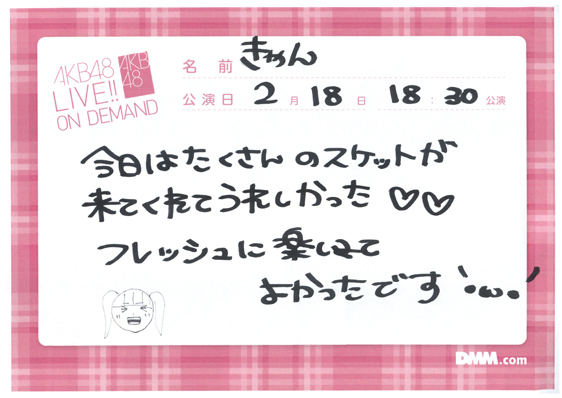 AKB48
LIVE!!
ON DEMAND
AKB
48
名 前 きゃん
公演日 2月18日 18:30公演
今日はたくさんのスケットが
来てくれてうれしかった♡♡
フレッシュに楽しめて
よかったです '・ω・'
DMM.com